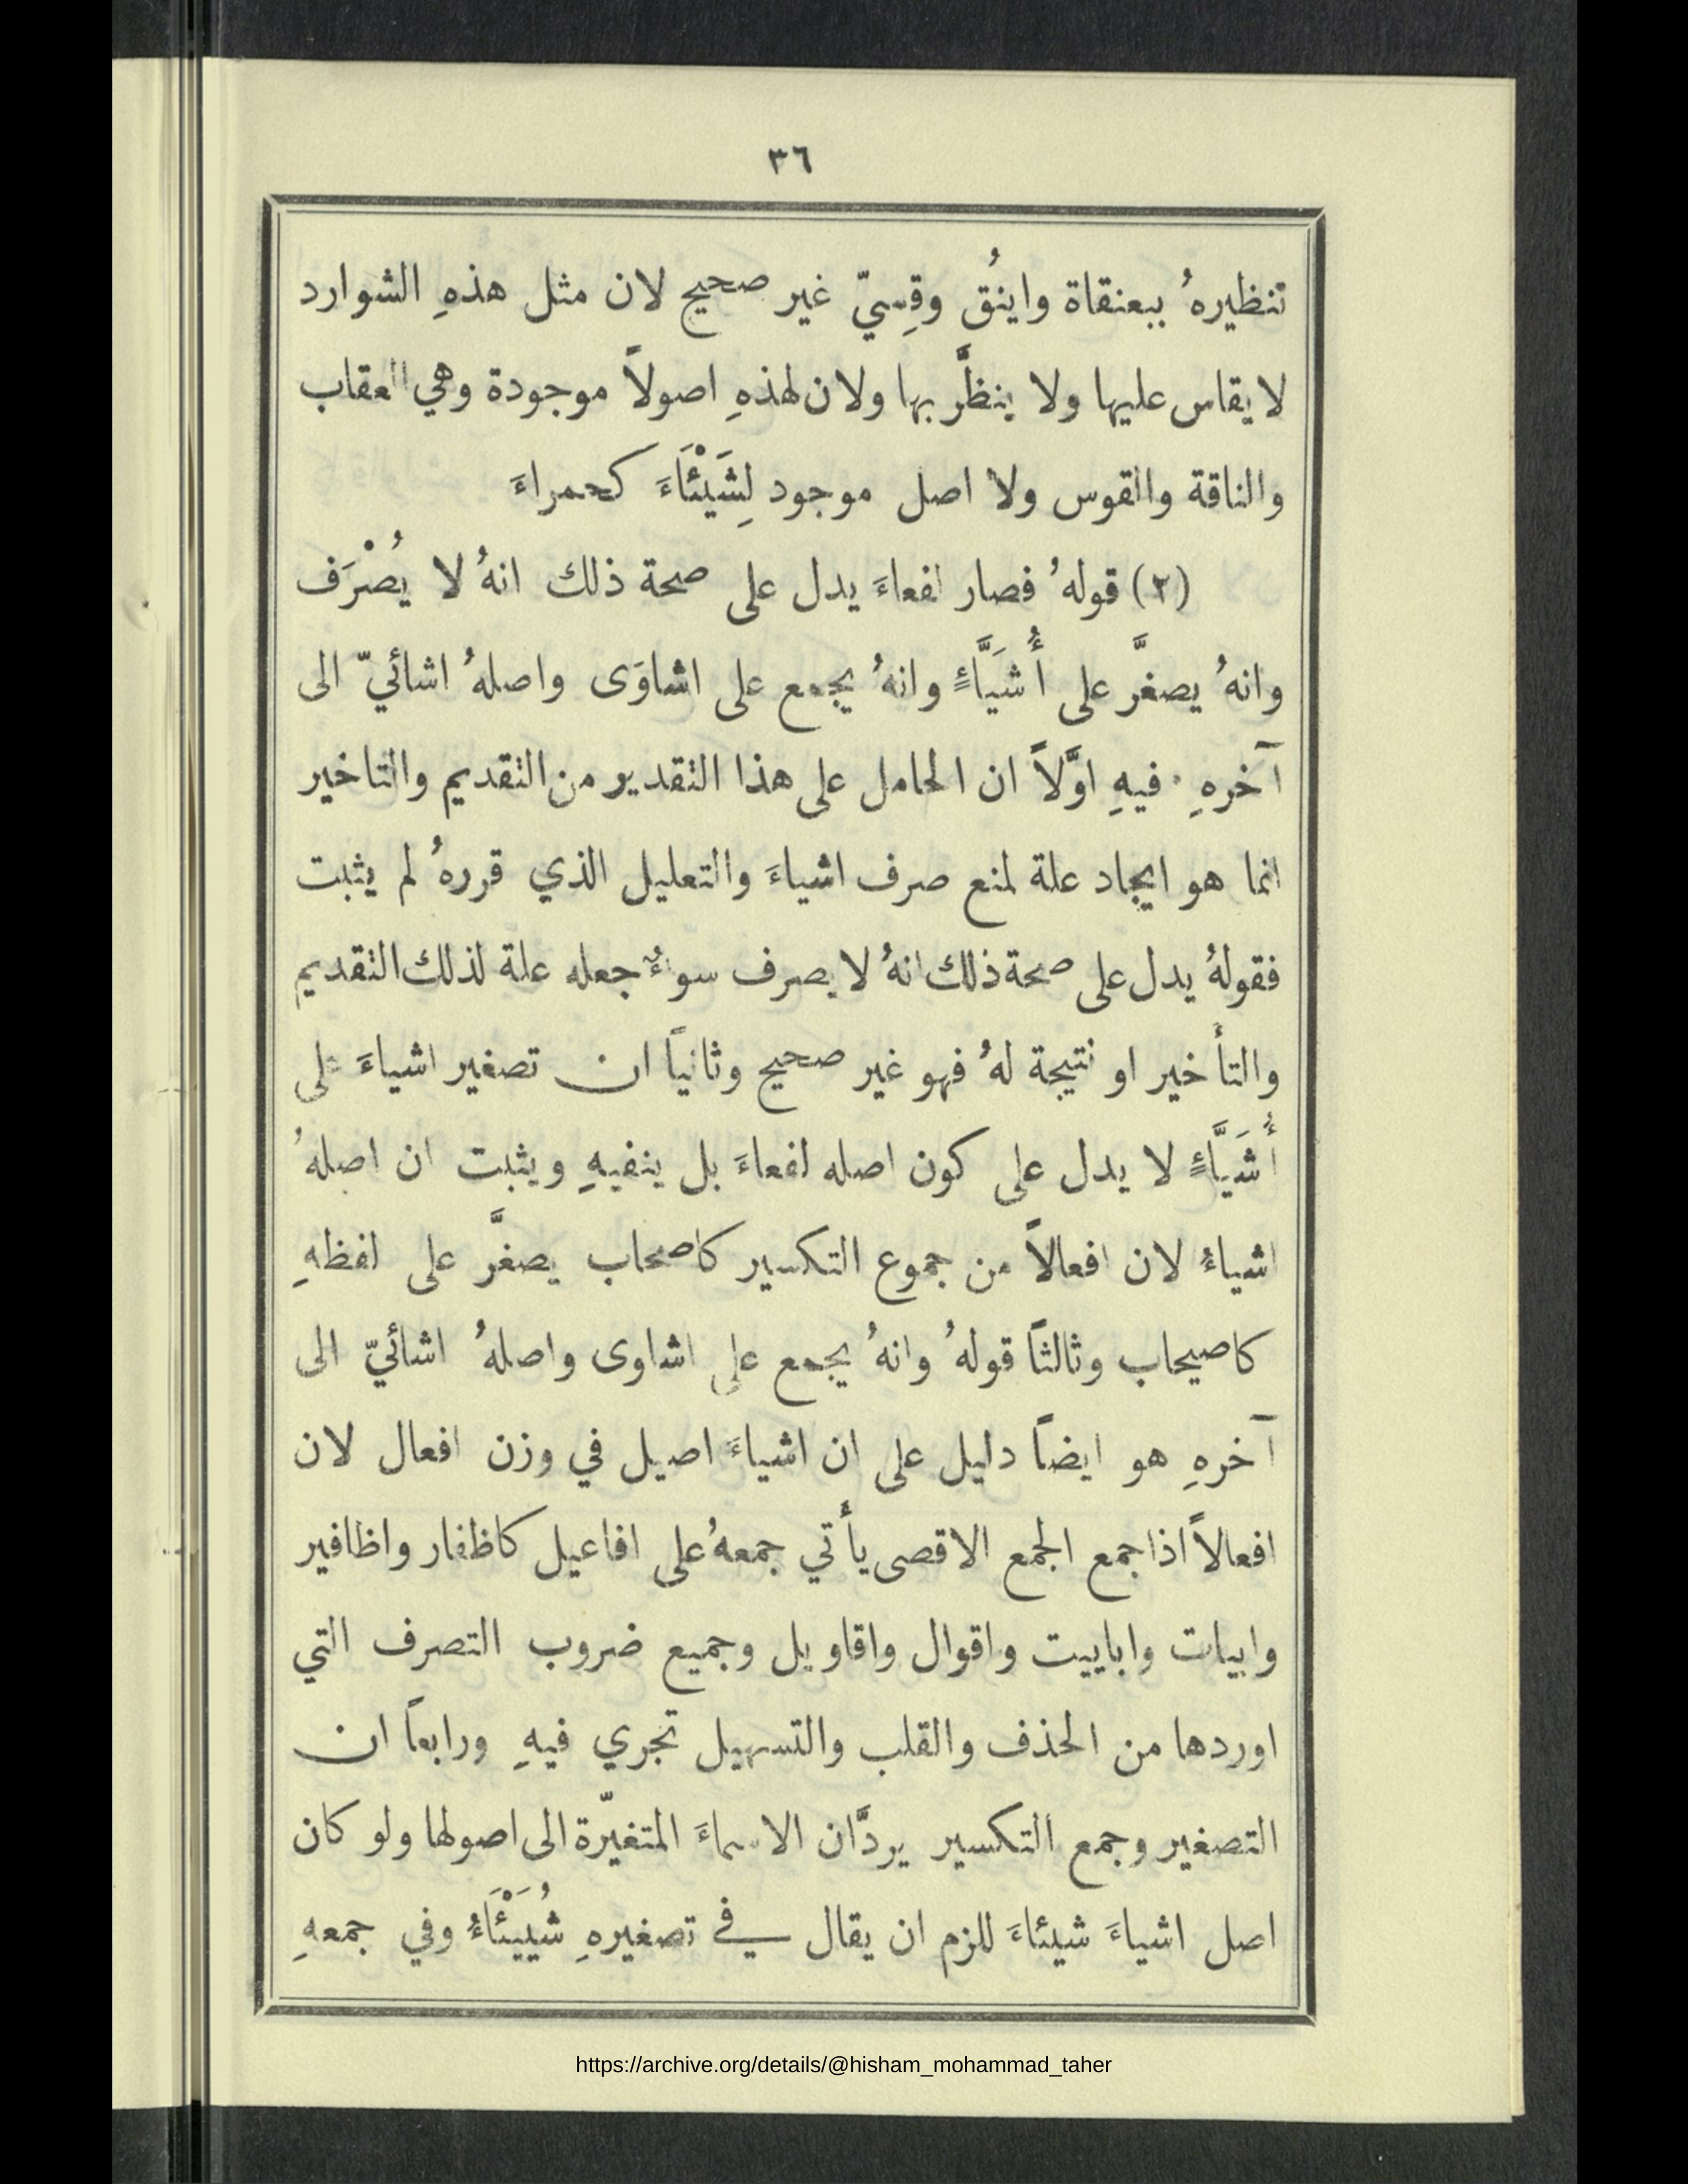 ٣٦
تنظيرهُ ببعنقاة واينُق وقِسيّ غير صحيح لان مثل هذهِ الشوارد
لا يقاس عليها ولا ينظَّر بها ولان لهذهِ اصولاً موجودة وهي العقاب
والناقة والقوس ولا اصل موجود لِشَيْئَاءَ كحمراءَ
(٢) قولهُ فصار لفعاءَ يدل على صحة ذلك انهُ لا يُصْرَف
وانهُ يصغَّر على أُشَيَّاءٍ وانهُ يجمع على اشاوَى واصلهُ اشائيّ الى
آخرهِ · فيهِ اوَّلاً ان الحامل على هذا التقدير من التقديم والتاخير
انما هو ايجاد علة لمنع صرف اشياءَ والتعليل الذي قررهُ لم يثبت
فقولهُ يدل على صحة ذلك انهُ لا يصرف سواءٌ جعله علة لذلك التقديم
والتأخير او نتيجة لهُ فهو غير صحيح وثانياً ان تصغير اشياءَ على
أُشَيَّاءٍ لا يدل على كون اصله لفعاءَ بل ينفيهِ ويثبت ان اصلهُ
اشياءُ لان افعالاً من جموع التكسير كاصحاب يصغَّر على لفظهِ
كاصيحاب وثالثاً قولهُ وانهُ يجمع على اشاوى واصلهُ اشائيّ الى
آخرهِ هو ايضاً دليل على ان اشياءَ اصيل في وزن افعال لان
افعالاً اذا جمع الجمع الاقصى يأتي جمعهُ على افاعيل كاظفار واظافير
وابيات واباييت واقوال واقاويل وجميع ضروب التصرف التي
اوردها من الحذف والقلب والتسهيل تجري فيهِ ورابعاً ان
التصغير وجمع التكسير يردَّان الاسماءَ المتغيّرة الى اصولها ولو كان
اصل اشياءَ شيئاءَ للزم ان يقال في تصغيرهِ شُيَيْئَاءُ وفي جمعهِ
https://archive.org/details/@hisham_mohammad_taher